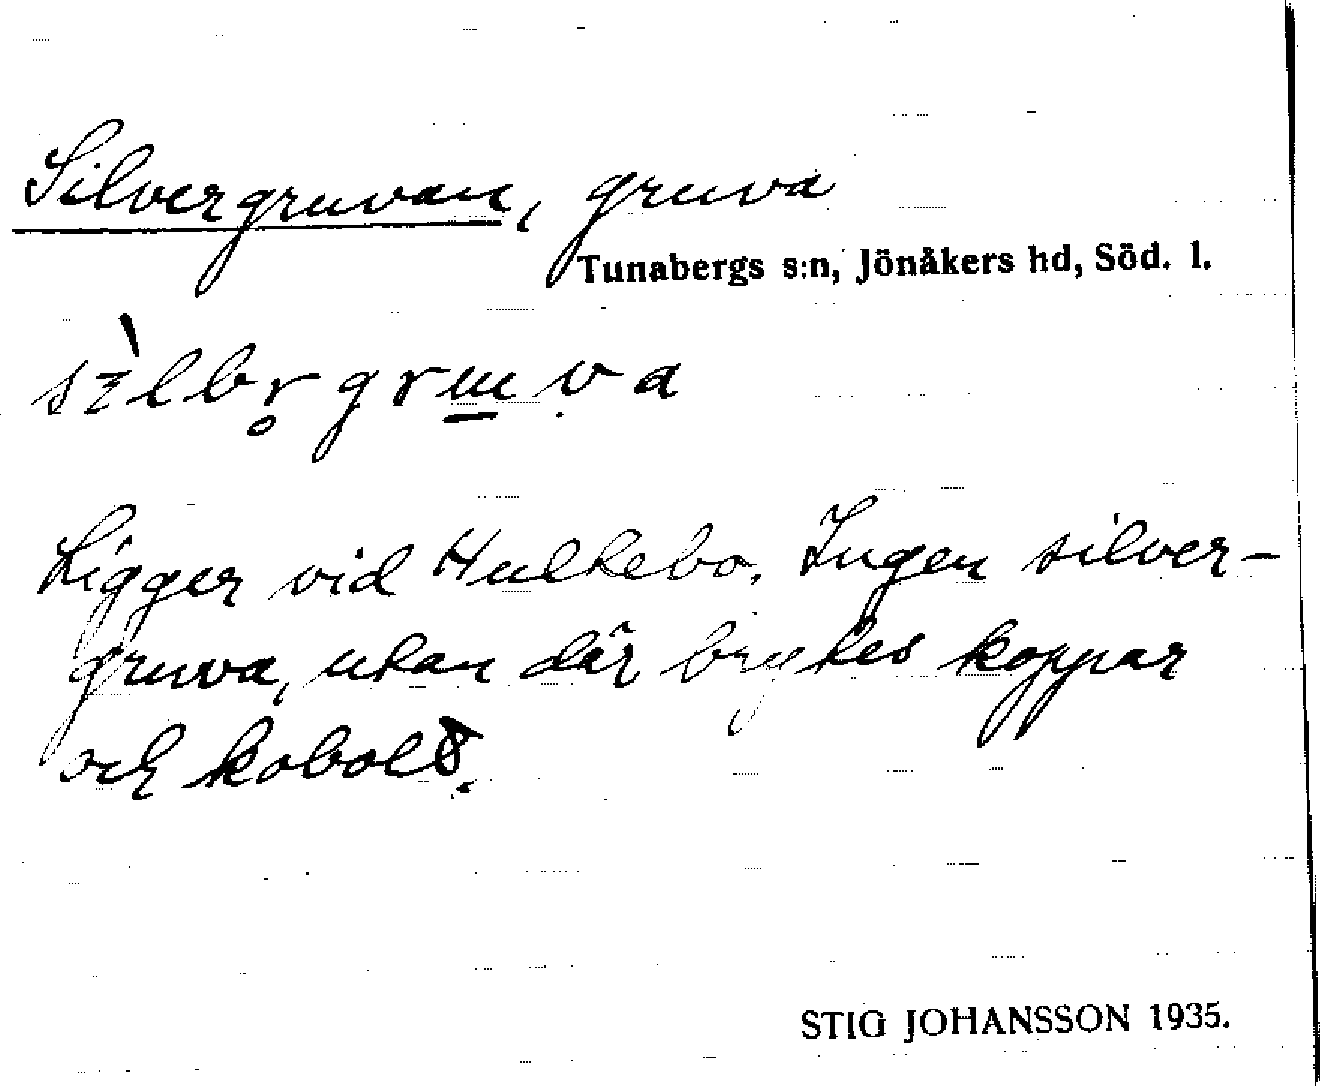 Silvergruvan, gruva
Tunabergs s:n, Jönåkers hd, Söd. l.
sìlbr̥gruva
Ligger vid Hultebo. Ingen silver-
gruva, utan där brytes koppar
och kobolt.
STIG JOHANSSON 1935.